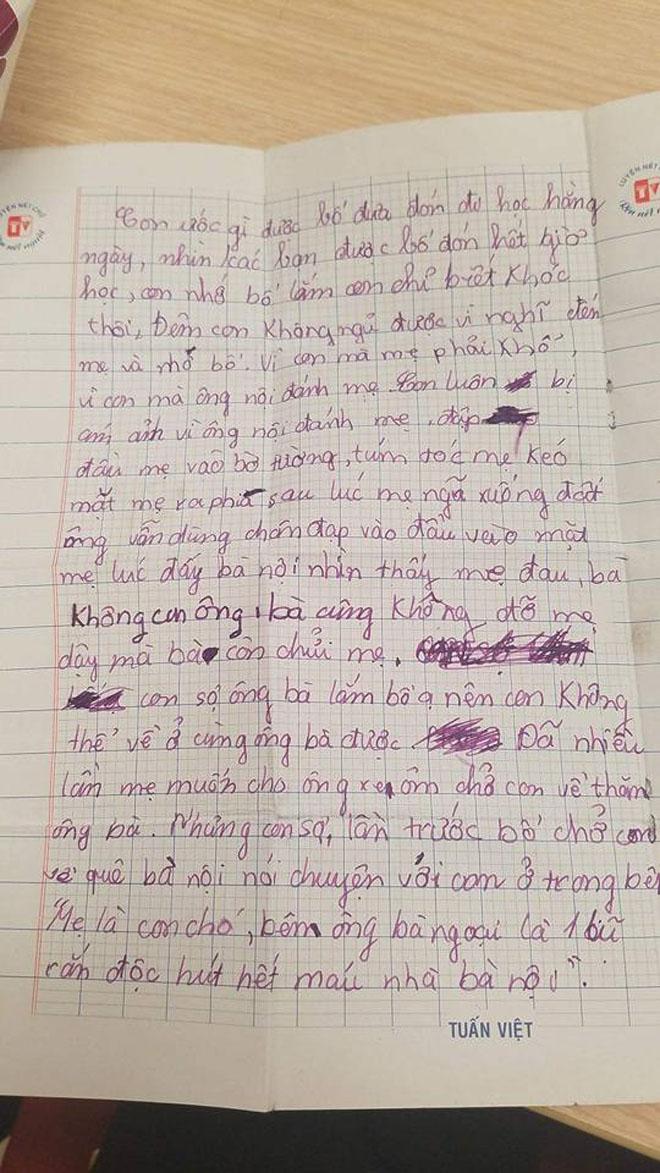 Con ước gì được bố đưa đón đi học hằng
ngày, nhìn các bạn được bố đón hết giờ
học, con nhớ bố lắm con chỉ biết khóc
thôi, Đêm con không ngủ được vì nghĩ đến
mẹ và nhớ bố. Vì con mà mẹ phải khổ,
vì con mà ông nội đánh mẹ. Con luôn bị
ám ảnh vì ông nội đánh mẹ, đập
đầu mẹ vào bờ tường, túm tóc mẹ kéo
mặt mẹ ra phía sau lúc mẹ ngã xuống đất
ông vẫn dùng chân đạp vào đầu vào mặt
mẹ lúc đấy bà nội nhìn thấy mẹ đau, bà
không can ông, bà cũng không đỡ mẹ
dậy mà bà còn chửi mẹ.
con sợ ông bà lắm bố ạ nên con không
thể về ở cùng ông bà được. Đã nhiều
lần mẹ muốn cho ông xe ôm chở con về thăm
ông bà. Nhưng con sợ, lần trước bố chở con
về quê bà nội nói chuyện với con ở trong bếp
"Mẹ là con chó, bên ông bà ngoại là 1 lũ
rắn độc hút hết máu nhà bà nội".
TUẤN VIỆT
TV
TV